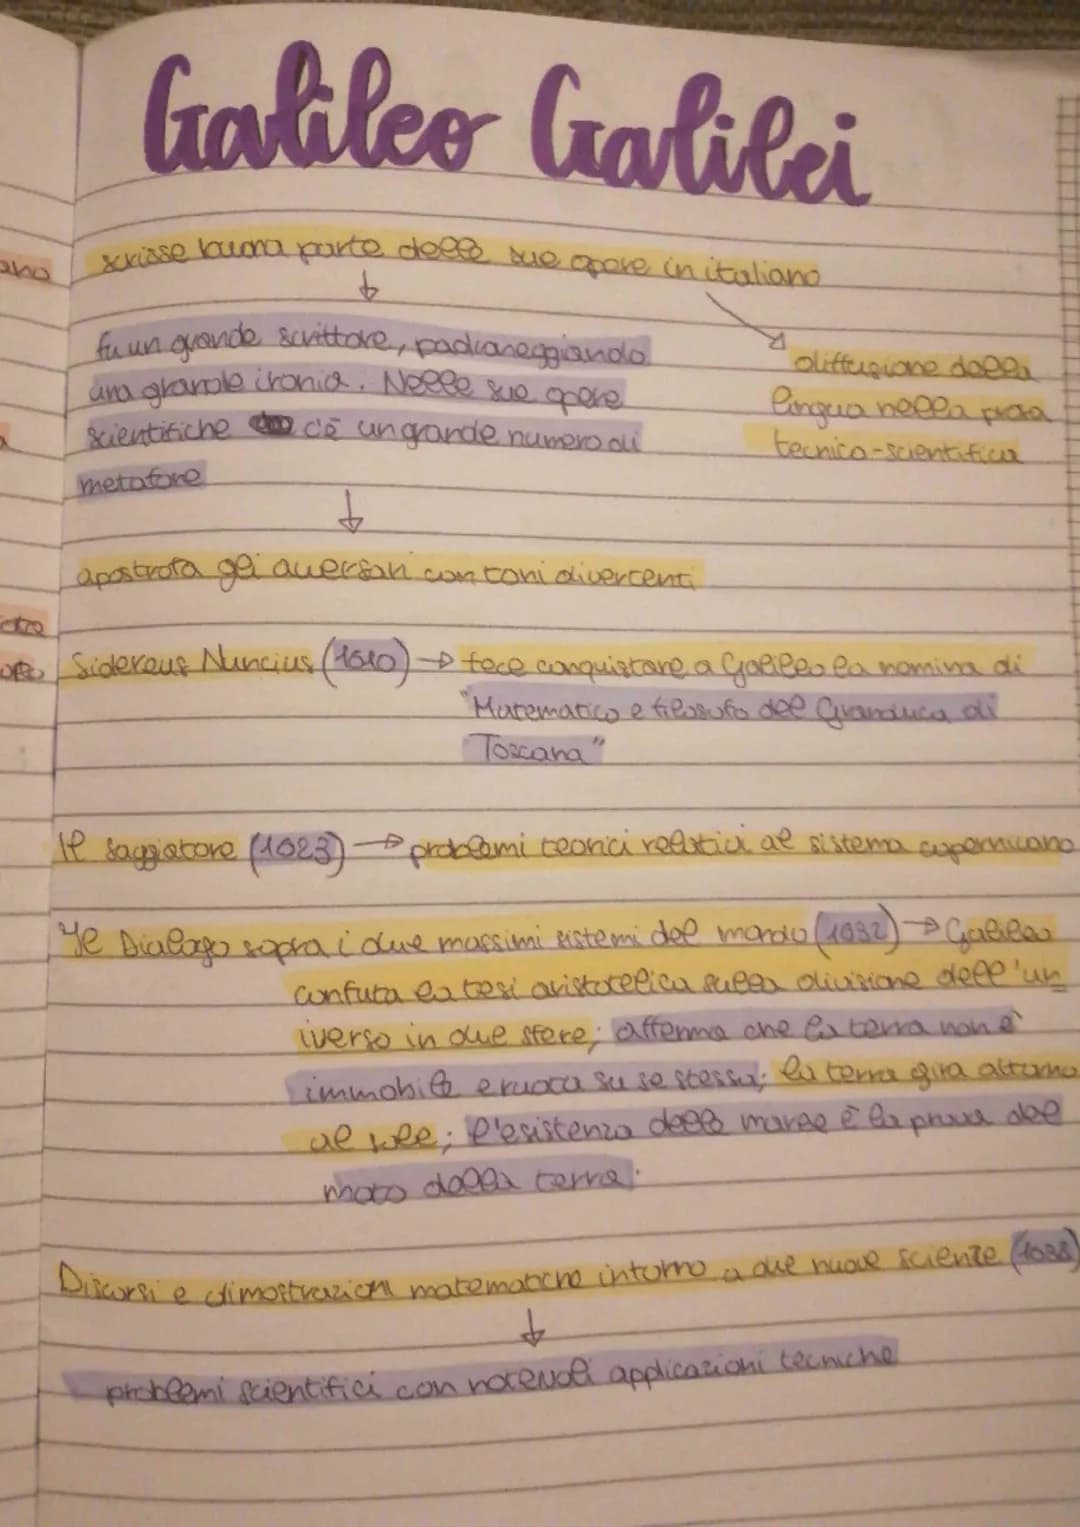 Galileo Galilei
scrisse buona parte delle sue opere in italiano
fu un grande scrittore, padroneggiando
una grande ironia. Nelle sue opere
scientifiche c'è un grande numero di
metafore
diffusione della
lingua nella prosa
tecnico-scientifica
apostrofa gli avversari con toni divertenti
Sidereus Nuncius (1610) → fece conquistare a Galileo la nomina di
"Matematico e filosofo del Granduca di
Toscana"
Il Saggiatore (1623) → problemi teorici relativi al sistema copernicano
Il Dialogo sopra i due massimi sistemi del mondo (1632) → Galileo
confuta la tesi aristotelica sulla divisione dell'un
iverso in due sfere; afferma che la terra non è
immobile e ruota su se stessa; la terra gira attorno
al sole; l'esistenza delle maree è la prova del
moto della terra.
Discorsi e dimostrazioni matematiche intorno a due nuove scienze (1638)
problemi scientifici con notevoli applicazioni tecniche
ano